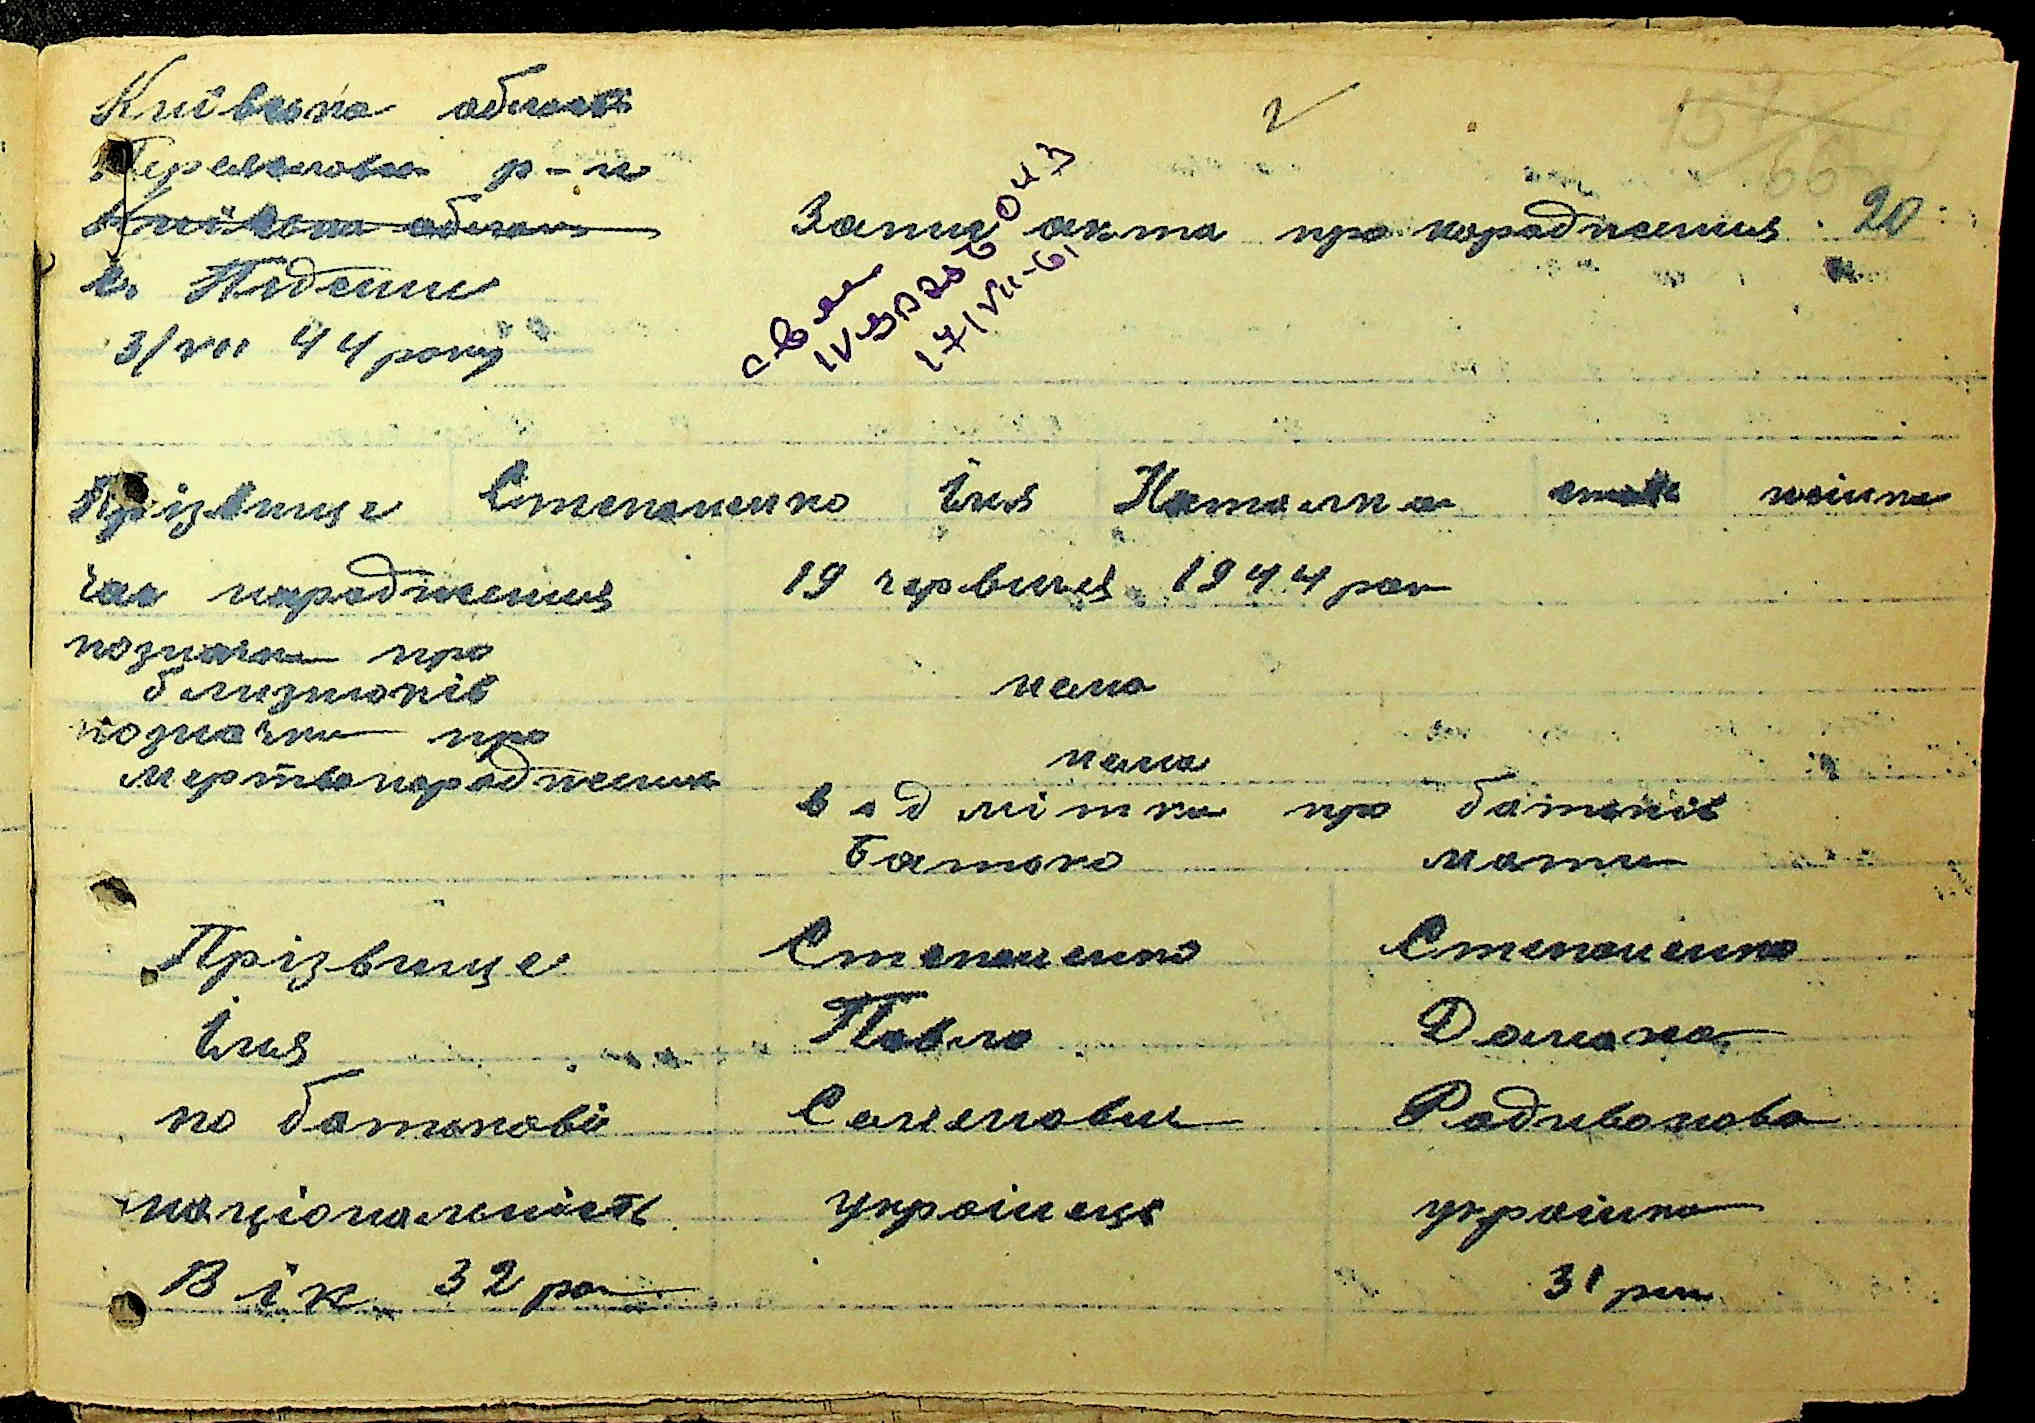 Київська область
р-н
Київська область
Запис акта про народження 20
с.
3/VII 44 року
17/VII-61
Прізвище Степаненко імя Наталка стать жіноча
час народження 19 червня 1944 рок
позначки про
близнюків нема
позначки про
мертвонароджених нема
відмітки про батьків
Батько мати
Прізвище Степаненко Степаненко
імя Павло Домаха
по батькові Семенович Родивонова
національність українець українка
Вік 32 ро 31 рік